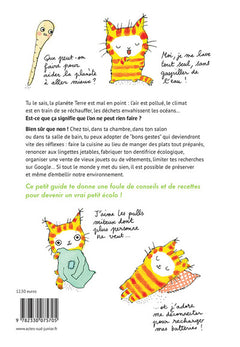 Que peut-on
faire pour
aider la planète
à aller mieux ?
Moi, je me lave
tout seul, sans
gaspiller de
l'eau !
Tu le sais, la planète Terre est mal en point : l'air est pollué, le climat
est en train de se réchauffer, les déchets envahissent les océans...
Est-ce que ça signifie que l'on ne peut rien faire ?
Bien sûr que non ! Chez toi, dans ta chambre, dans ton salon
ou dans ta salle de bain, tu peux adopter de "bons gestes" qui deviendront
vite des réflexes : faire la cuisine au lieu de manger des plats tout préparés,
renoncer aux lingettes jetables, fabriquer ton dentifrice écologique,
organiser une vente de vieux jouets ou de vêtements, limiter tes recherches
sur Google... Si tout le monde s'y met du sien, il est possible de préserver
et même d'embellir notre environnement.
Ce petit guide te donne une foule de conseils et de recettes
pour devenir un vrai petit écolo !
J'aime les pulls
miteux dont
plus personne
ne veut...
...et j'adore me
déconnecter
pour recharger
mes batteries !
12.90 euros
9 782330 075705
www.actes-sud-junior.fr